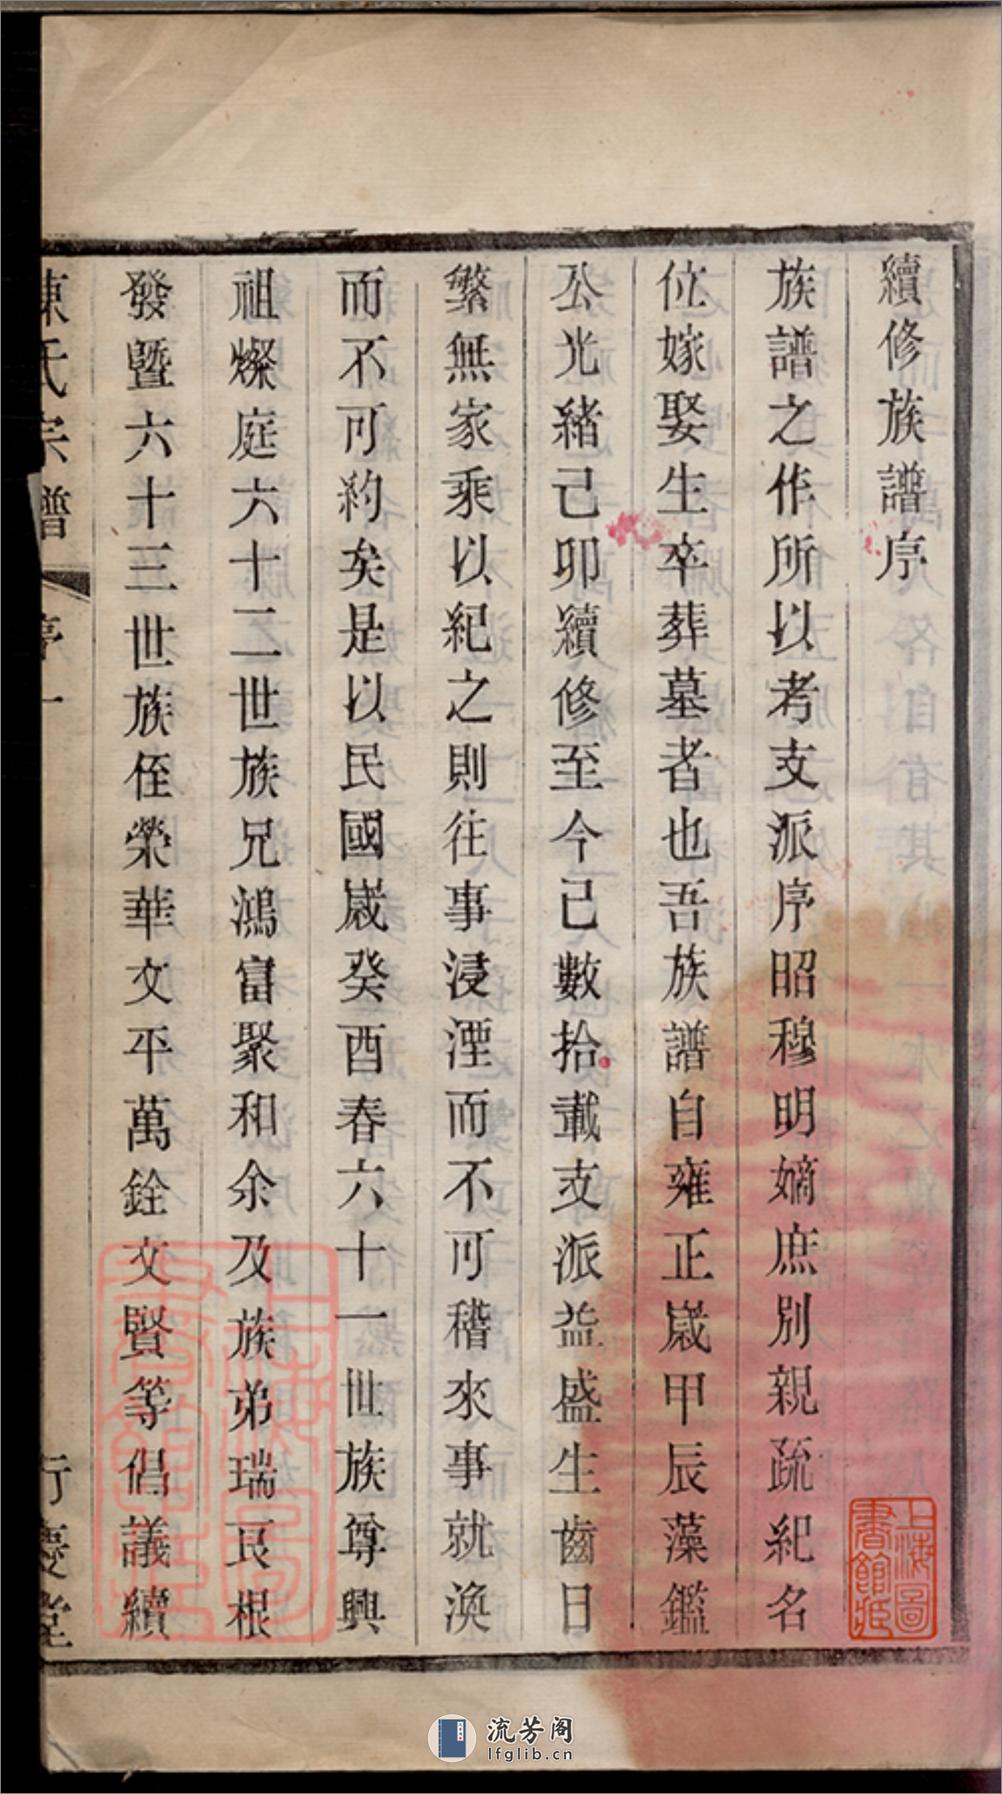 續修族譜序
族譜之作所以考支派序昭穆明嫡庶別親疏紀名
位嫁娶生卒葬墓者也吾族譜自雍正歲甲辰藻鑑
公光緒己卯續修至今已數拾載支派益盛生齒日
繁無家乘以紀之則往事浸湮而不可稽來事就渙
而不可約矣是以民國歲癸酉春六十一世族尊興
祖燦庭六十二世族兄鴻富聚和余及族弟瑞艮根
發暨六十三世族侄榮華文平萬銓文賢等倡議續
陳氏宗譜
序
一
行慶堂
上海圖
書館藏
上海圖
書館藏
流芳阁
lfglib.cn